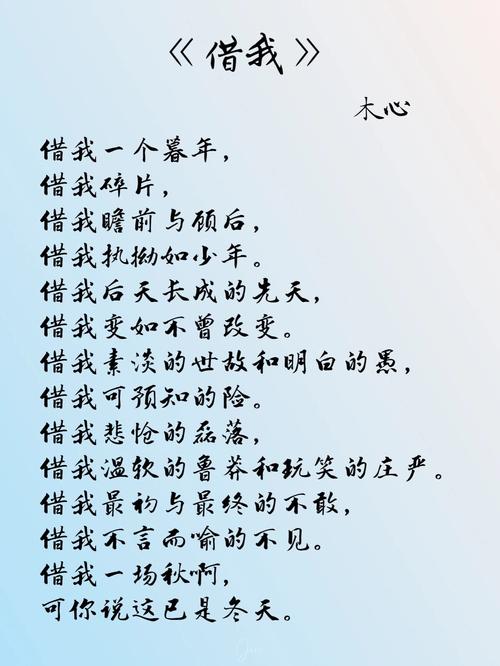 《借我》
木心
借我一个暮年，
借我碎片，
借我瞻前与顾后，
借我执拗如少年。
借我后天长成的先天，
借我变如不曾改变。
借我素淡的世故和明白的愚，
借我可预知的险。
借我悲怆的磊落，
借我温软的鲁莽和玩笑的庄严。
借我最初与最终的不敢，
借我不言而喻的不见。
借我一场秋啊，
可你说这已是冬天。